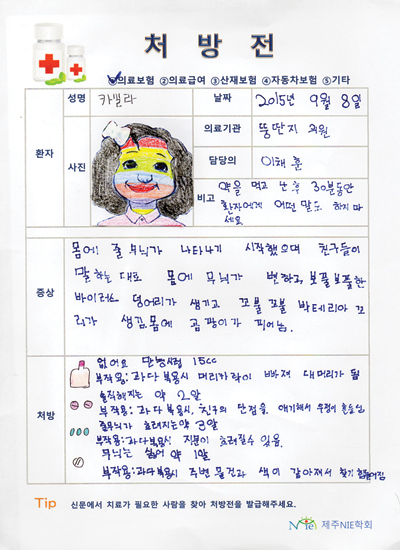 처 방 전
①의료보험 ②의료급여 ③산재보험 ④자동차보험 ⑤기타
환자
성명 카밀라 날짜 2015년 9월 8일
사진
의료기관 뚱딴지 의원
담당의 이채훈
비고 약을 먹고 난 후 30분동안
환자에게 어떤 말도 하지 마
세요
증상
몸에 줄무늬가 나타나기 시작했으며 친구들이
말하는 대로 몸에 무늬가 변하고, 보풀보풀한
바이러스 덩어리가 생기고 꼬불꼬불 박테리아 꼬
리가 생김. 몸에 곰팡이가 피어남.
처방
없어요 단방시럽 15cc
부작용: 과다 복용시 머리카락이 빠져 대머리가 됨
솔직해지는 약 2알
부작용: 과다 복용시, 친구의 단점을 얘기해서 우정이
줄무늬가 흐려지는 약 3알
부작용: 과다복용시 지문이 흐려질수 있음.
무늬는 싫어 약 1알
부작용: 과다복용시 주변 물건과 색이 같아져서 찾기 힘들어짐
Tip 신문에서 치료가 필요한 사람을 찾아 처방전을 발급해주세요.
NIE 제주NIE학회